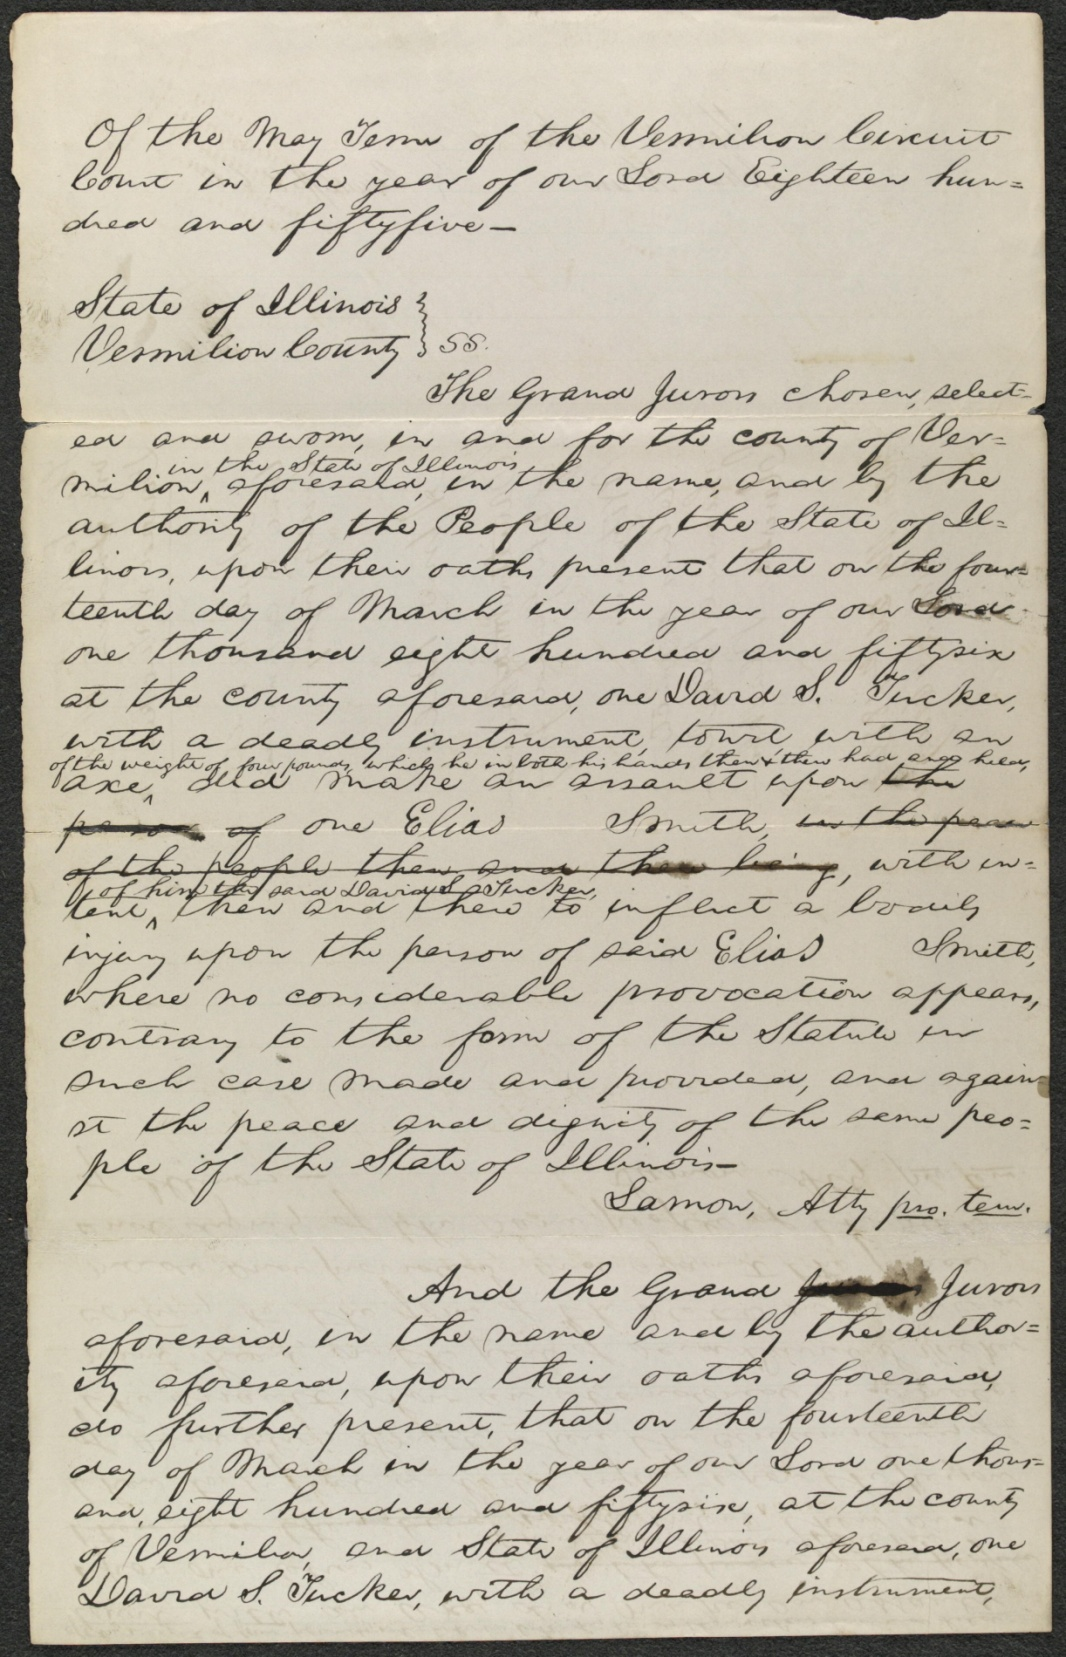 Of the May Term of the Vermilion Circuit
Court in the year of our Lord Eighteen hun=
dred and fiftyfive—
State of Illinois }
Vermilion County } SS.
The Grand Jurors chosen, select=
ed and sworn, in and for the county of Ver=
in the State of Illinois
milion, ^ aforesaid, in the name, and by the
authority of the People of the State of Il=
linois, upon their oaths present that on the four=
teenth day of March in the year of our Lord
one thousand eight hundred and fiftysix
at the county aforesaid, one David S. Tucker,
with a deadly instrument, towit, with an
of the weight of four pounds, which he in both his hands then & there had and held,
axe, ^ did make an assault upon the
person of one Elias Smith, in the peace
of the people then and there being, with in=
of him the said David S. Tucker,
tent, ^ then and there to inflict a bodily
injury upon the person of said Elias Smith,
where no considerable provocation appears,
contrary to the form of the Statute in
such case made and provided, and again
st the peace and dignity of the same peo=
ple of the State of Illinois—
Lamon, Atty pro. tem.
And the Grand Jurors
aforesaid, in the name and by the author=
ity aforesaid, upon their oaths aforesaid,
do further present, that on the fourteenth
day of March in the year of our Lord one thous=
and, eight hundred and fiftysix, at the county
of Vermilion, and State of Illinois aforesaid, one
David S. Tucker, with a deadly instrument,